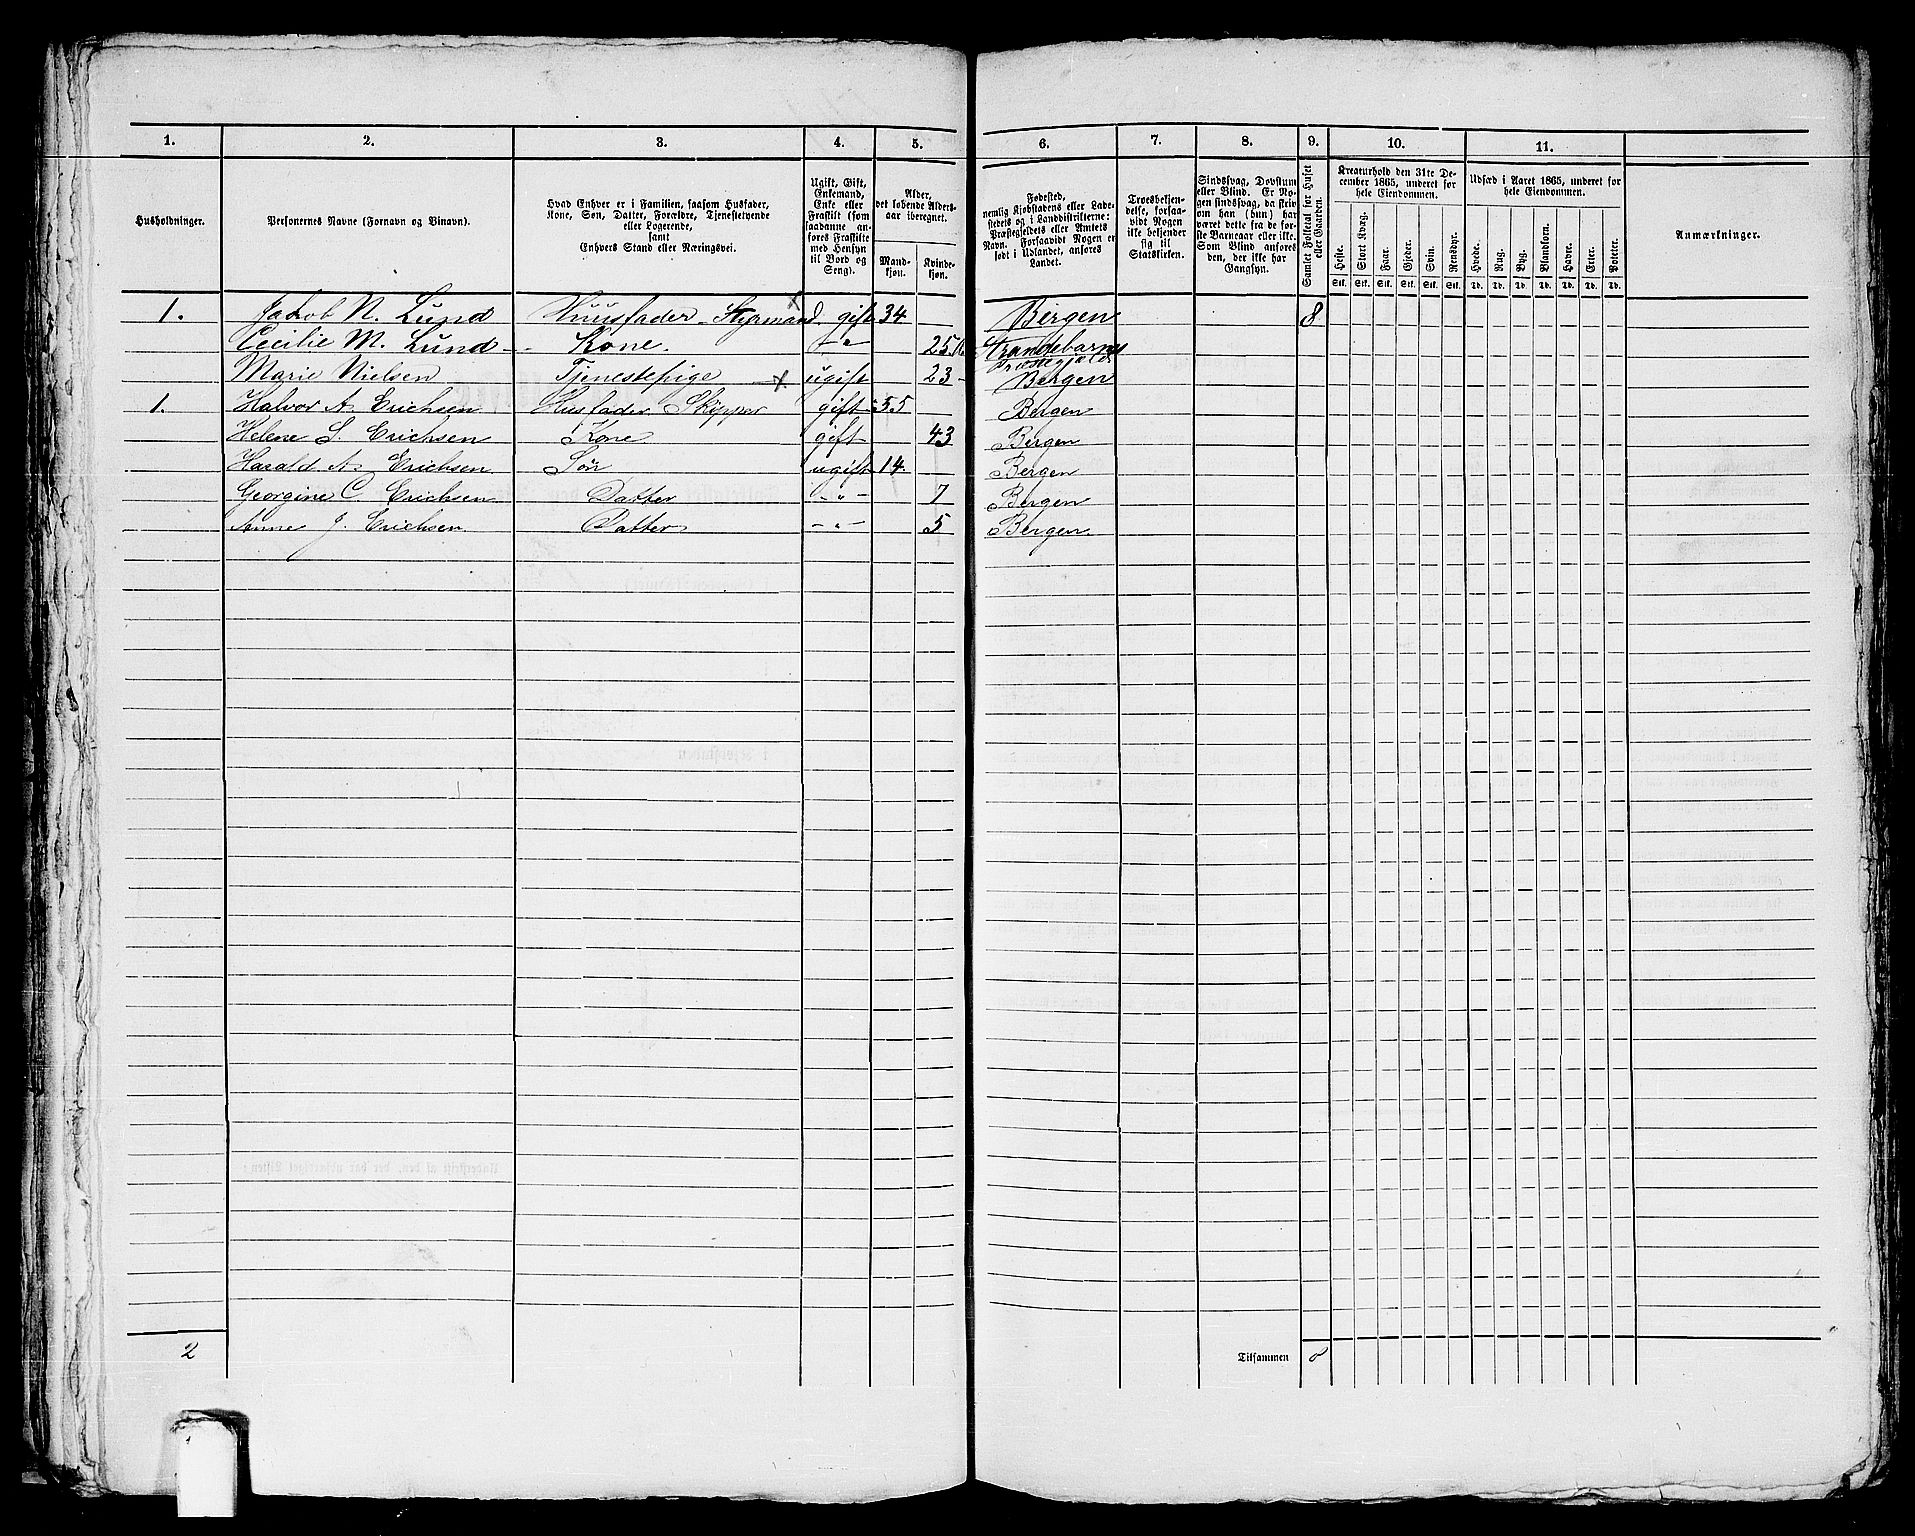 1. 2. 3. 4. 5. 6. 7. 8. 9. 10. 11.
Husholdninger.
Personernes Navne (Fornavn og Binavn).
Hvad Enhver er i Familien, saasom Husfader,
Kone, Søn, Datter, Forældre, Tjenestetyende
eller Logerende,
samt
Enhvers Stand eller Næringsvei.
Ugift, Gift,
Enkemand,
Enke eller
Fraskilt (som
saadanne an-
føres Fraskilte
med Hensyn
til Bord og
Seng).
Alder,
det løbende Alders-
aar iberegnet.
Mand-
kjøn.
Kvinde-
kjøn.
Fødested,
nemlig Kjøbstadens eller Lade-
stedets og i Landdistrikterne:
Præstegjeldets eller Amtets
Navn. Forsaavidt Nogen er
født i Udlandet, anføres
Landet.
Troesbekjen-
delse, forsaa-
vidt Nogen
ikke bekjender
sig til
Statskirken.
Sindssvag, Døvstum
eller Blind. Er No-
gen sindssvag, da skriv
om han (hun) har
været dette fra de før-
ste Barneaar eller ikke.
Som Blind anføres
den, der ikke har
Gangsyn.
Samlet Folketal for Huset
eller Gaarden.
Kreaturhold den 31te De-
cember 1865, underet for
hele Eiendommen.
Heste. Stort Kvæg. Faar. Gjeder. Svin. Rensdyr.
Stk. Stk. Stk. Stk. Stk. Stk.
Udsæd i Aaret 1865, underet for
hele Eiendommen.
Hvede. Rug. Byg. Blandkorn. Havre. Erter. Poteter.
Td. Td. Td. Td. Td. Td. Td.
Anmærkninger.
1. Jakob N. Lund Huusfader - Styrmand gift 34 Bergen 8
Cecilie M. Lund - Kone. -"- 25 Strandebarns
Præstegjæld
Marie Nielsen Tjenestepige ugift 23 - Bergen
1. Halvor A. Erichsen Husfader Skipper gift 55 Bergen
Helene S. Erichsen Kone gift 43 Bergen
Harald A. Erichsen Søn ugift 14 Bergen
Georgine C. Erichsen Datter -"- 7 Bergen
Anne J. Erichsen Datter -"- 5 Bergen.
2 Tilsammen 8